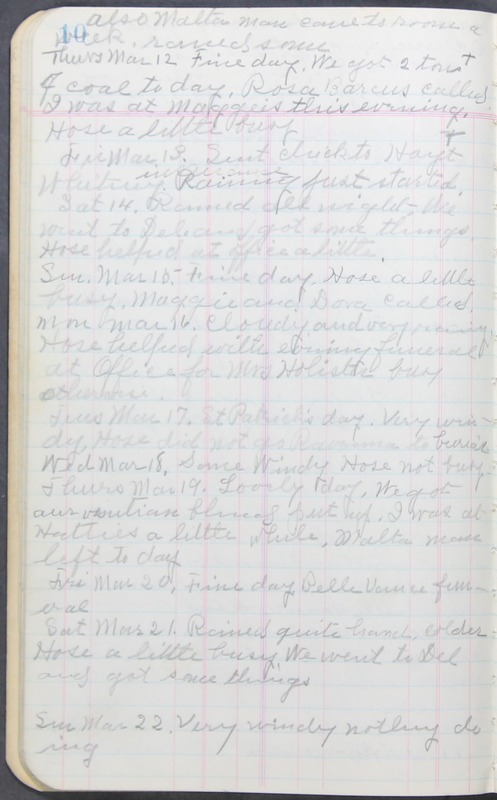 10
also Malta man came to room a
week. rained some
Thurs Mar 12 Fine day. We got 2 tons
of coal to day. Rosa Barcus called
I was at Maggies this evening.
Hose a little busy
Fri Mar 13. Sent check to Hoyt
Whitney. Raining just started.
Sat 14. Rained all night. We
went to Delaware got some things.
Hose helped at office a little.
Sun. Mar 15. Fine day. Hose a little
busy. Maggie and Dora called.
Mon Mar 16. Cloudy and very
Hose helped with funeral
at Office for Mrs busy
otherwise.
Tues Mar 17. St Patrick's day. Very win-
dy. Hose did not go Ravenna to burial
Wed Mar 18. Some Windy Hose not busy.
Thurs Mar 19. Lovely day. We got
our venitian blinds put up. I was at
Hatties a little while. Malta man
left to day
Fri Mar 20. Fine day Belle Vance fun-
eral
Sat Mar 21. Rained quite hard. colder.
Hose a little busy. We went to Del
and got some things
Sun Mar 22. Very windy nothing do
ing